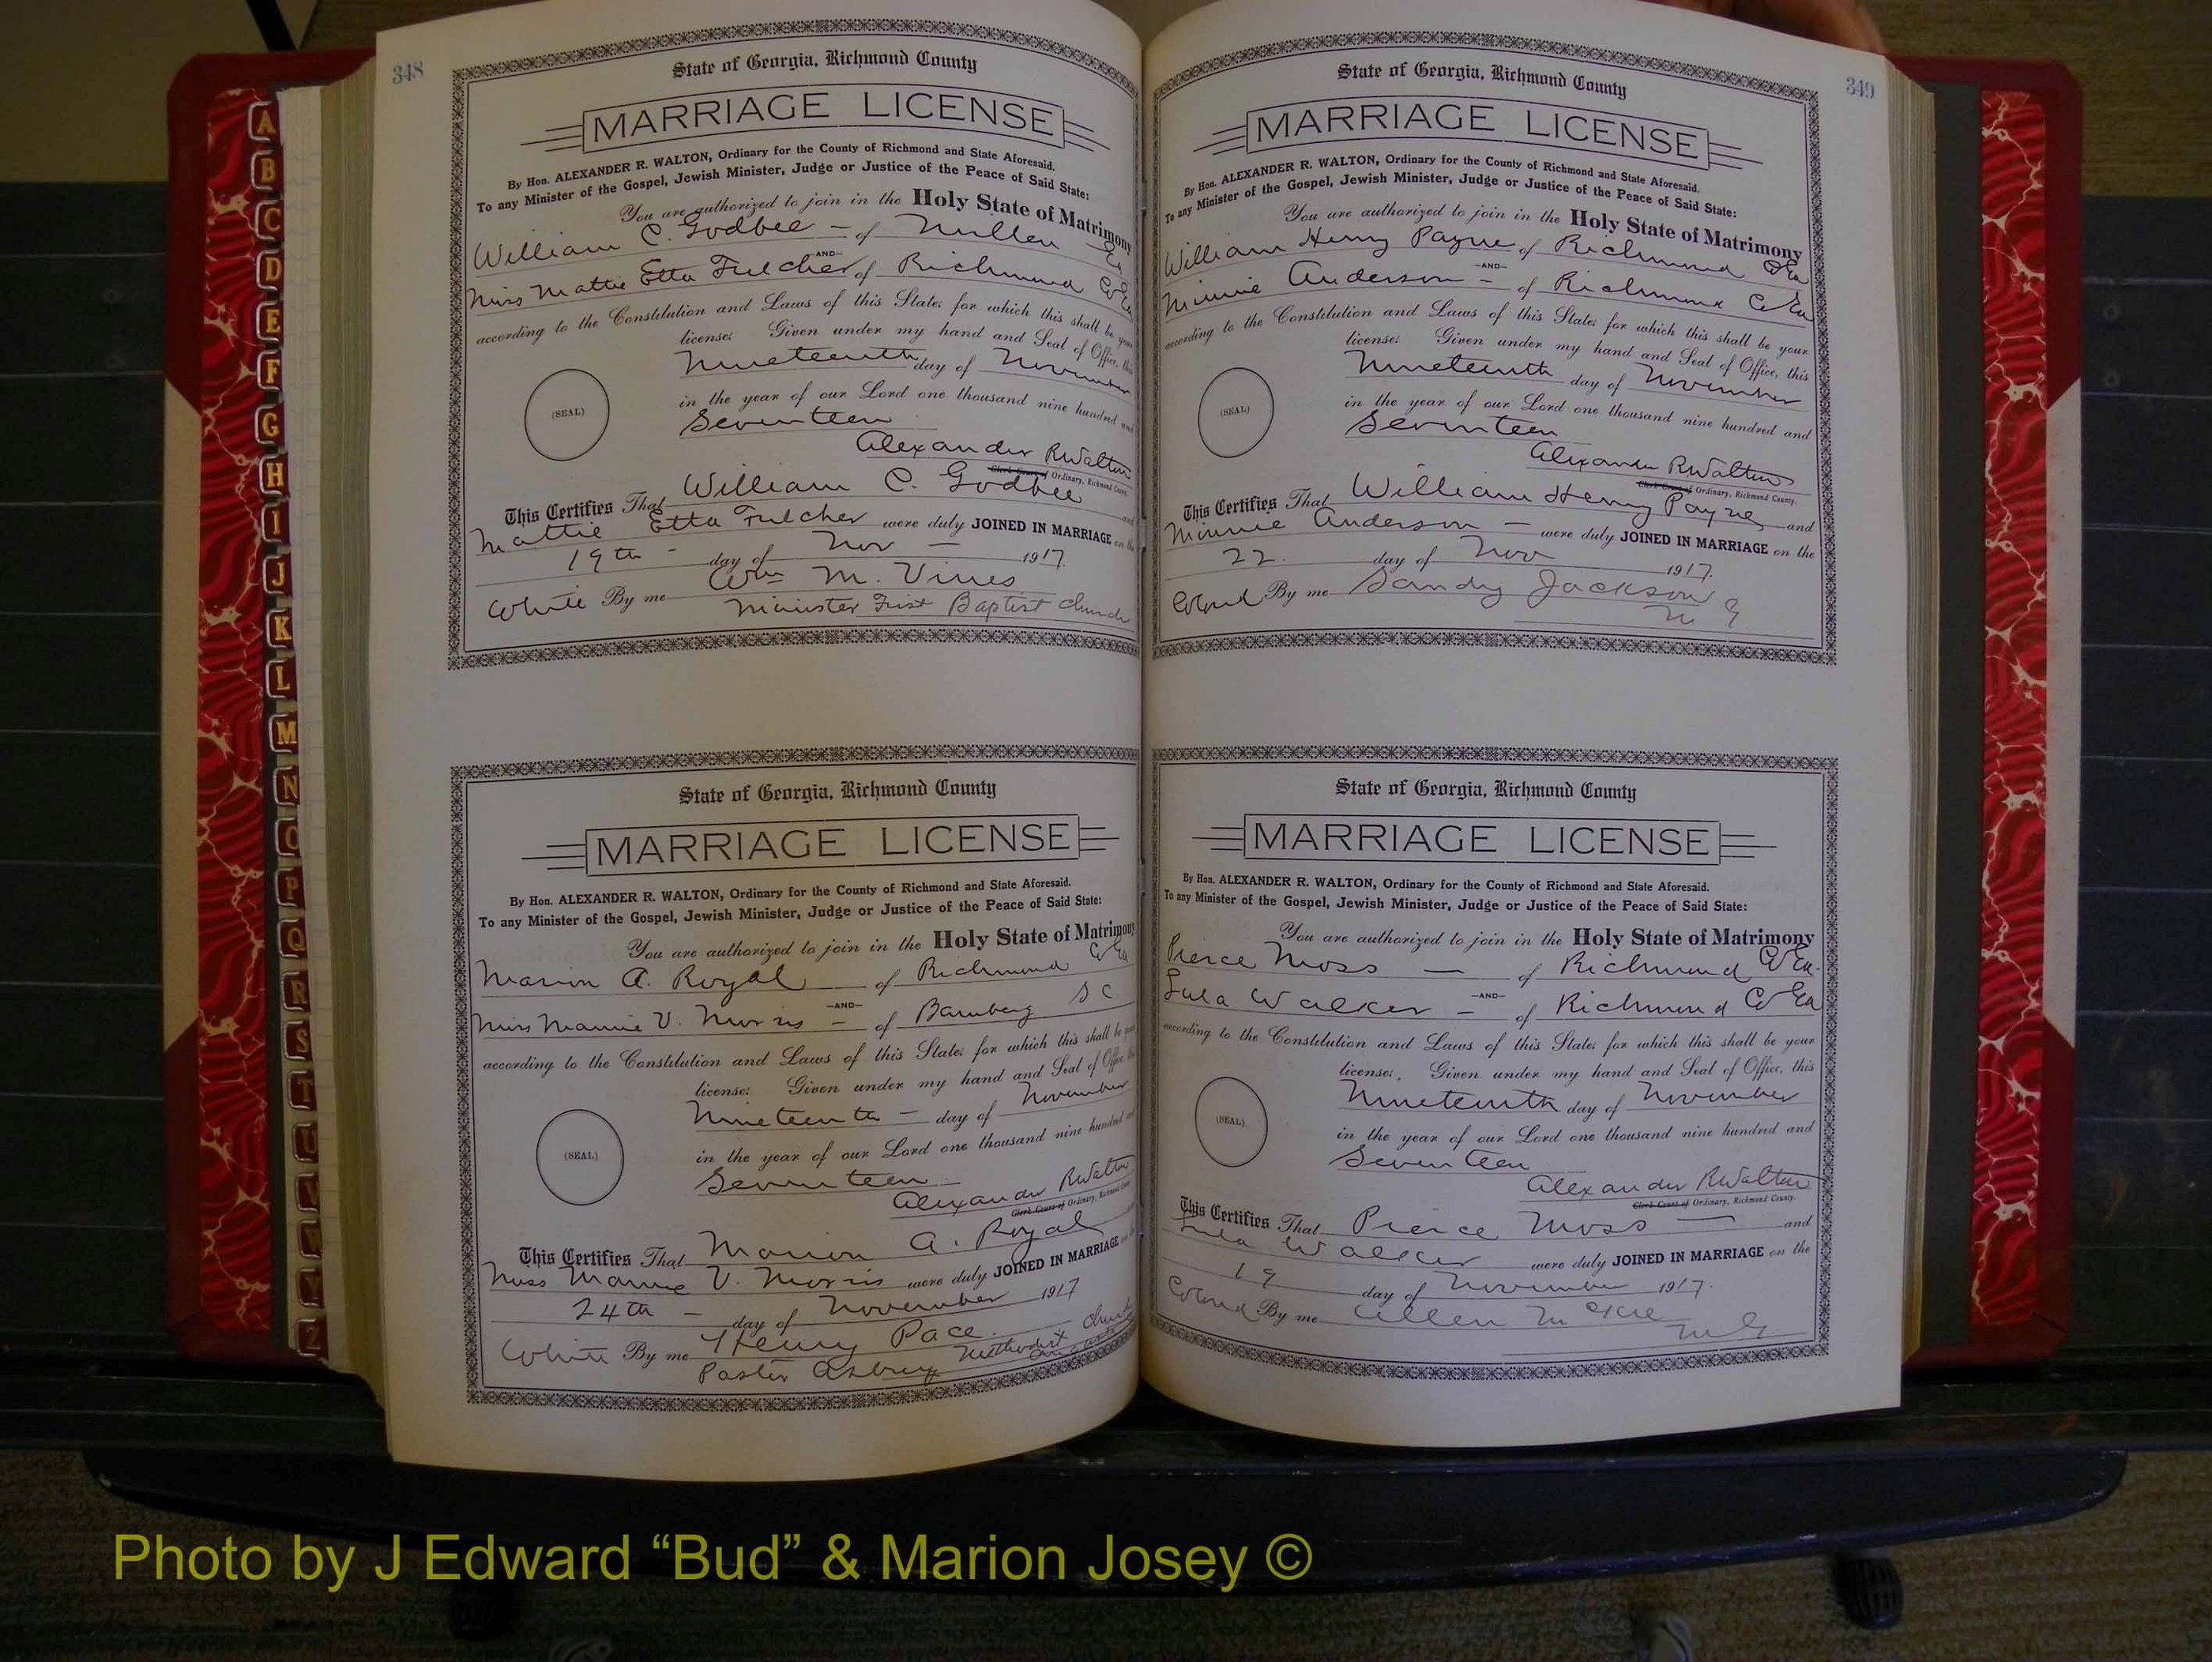 348
State of Georgia, Richmond County
MARRIAGE LICENSE
By Hon. ALEXANDER R. WALTON, Ordinary for the County of Richmond and State Aforesaid.
To any Minister of the Gospel, Jewish Minister, Judge or Justice of the Peace of Said State:
You are authorized to join in the Holy State of Matrimony
William C. Godbee - of Millen Ga
-AND-
Miss Mattie Etta Fulcher of Richmond Co Ga
according to the Constitution and Laws of this State; for which this shall be your
license: Given under my hand and Seal of Office, this
Nineteenth day of November
in the year of our Lord one thousand nine hundred and
(SEAL)
Seventeen
Alexander R Walton
Clerk Court of Ordinary, Richmond County.
This Certifies That William C. Godbee and
Mattie Etta Fulcher were duly JOINED IN MARRIAGE on the
19th - day of Nov - 1917.
White By me Wm M. Vines
Minister First Baptist Church
State of Georgia, Richmond County
MARRIAGE LICENSE
By Hon. ALEXANDER R. WALTON, Ordinary for the County of Richmond and State Aforesaid.
To any Minister of the Gospel, Jewish Minister, Judge or Justice of the Peace of Said State:
You are authorized to join in the Holy State of Matrimony
Marion A. Royal of Richmond Co Ga
-AND-
Miss Mannie V. Morris - of Bamberg S C
according to the Constitution and Laws of this State; for which this shall be your
license: Given under my hand and Seal of Office, this
Nineteenth - day of November
in the year of our Lord one thousand nine hundred and
(SEAL)
Seventeen
Alexander R Walton
Clerk Court of Ordinary, Richmond County
This Certifies That Marion A. Royal
Miss Mannie V. Morris were duly JOINED IN MARRIAGE on the
24th - day of November 1917
White By me Henry Pace.
Pastor Asbury Methodist Church
349
State of Georgia, Richmond County
MARRIAGE LICENSE
By Hon. ALEXANDER R. WALTON, Ordinary for the County of Richmond and State Aforesaid.
To any Minister of the Gospel, Jewish Minister, Judge or Justice of the Peace of Said State:
You are authorized to join in the Holy State of Matrimony
William Henry Payne of Richmond Co Ga
-AND-
Minnie Anderson - of Richmond Co Ga
according to the Constitution and Laws of this State; for which this shall be your
license: Given under my hand and Seal of Office, this
Nineteenth day of November
in the year of our Lord one thousand nine hundred and
(SEAL)
Seventeen
Alexander R Walton
Clerk Court of Ordinary, Richmond County.
This Certifies That William Henry Payne and
Minnie Anderson - were duly JOINED IN MARRIAGE on the
22. day of Nov 1917.
Colored By me Sandy Jackson
M G
State of Georgia, Richmond County
MARRIAGE LICENSE
By Hon. ALEXANDER R. WALTON, Ordinary for the County of Richmond and State Aforesaid.
To any Minister of the Gospel, Jewish Minister, Judge or Justice of the Peace of Said State:
You are authorized to join in the Holy State of Matrimony
Pierce Moss - of Richmond Co Ga.
-AND-
Lula Walker - of Richmond Co Ga
according to the Constitution and Laws of this State; for which this shall be your
license: Given under my hand and Seal of Office, this
Nineteenth day of November
in the year of our Lord one thousand nine hundred and
(SEAL)
Seventeen
Alexander R Walton
Clerk Court of Ordinary, Richmond County.
This Certifies That Pierce Moss - and
Lula Walker were duly JOINED IN MARRIAGE on the
19 day of November 1917.
Colored By me Allen McKie
M G
A
B
C
D
E
F
G
H
I
J
K
L
M
N
O
P
Q
R
S
T
U
V
W
Y
Z
Photo by J Edward “Bud” & Marion Josey ©